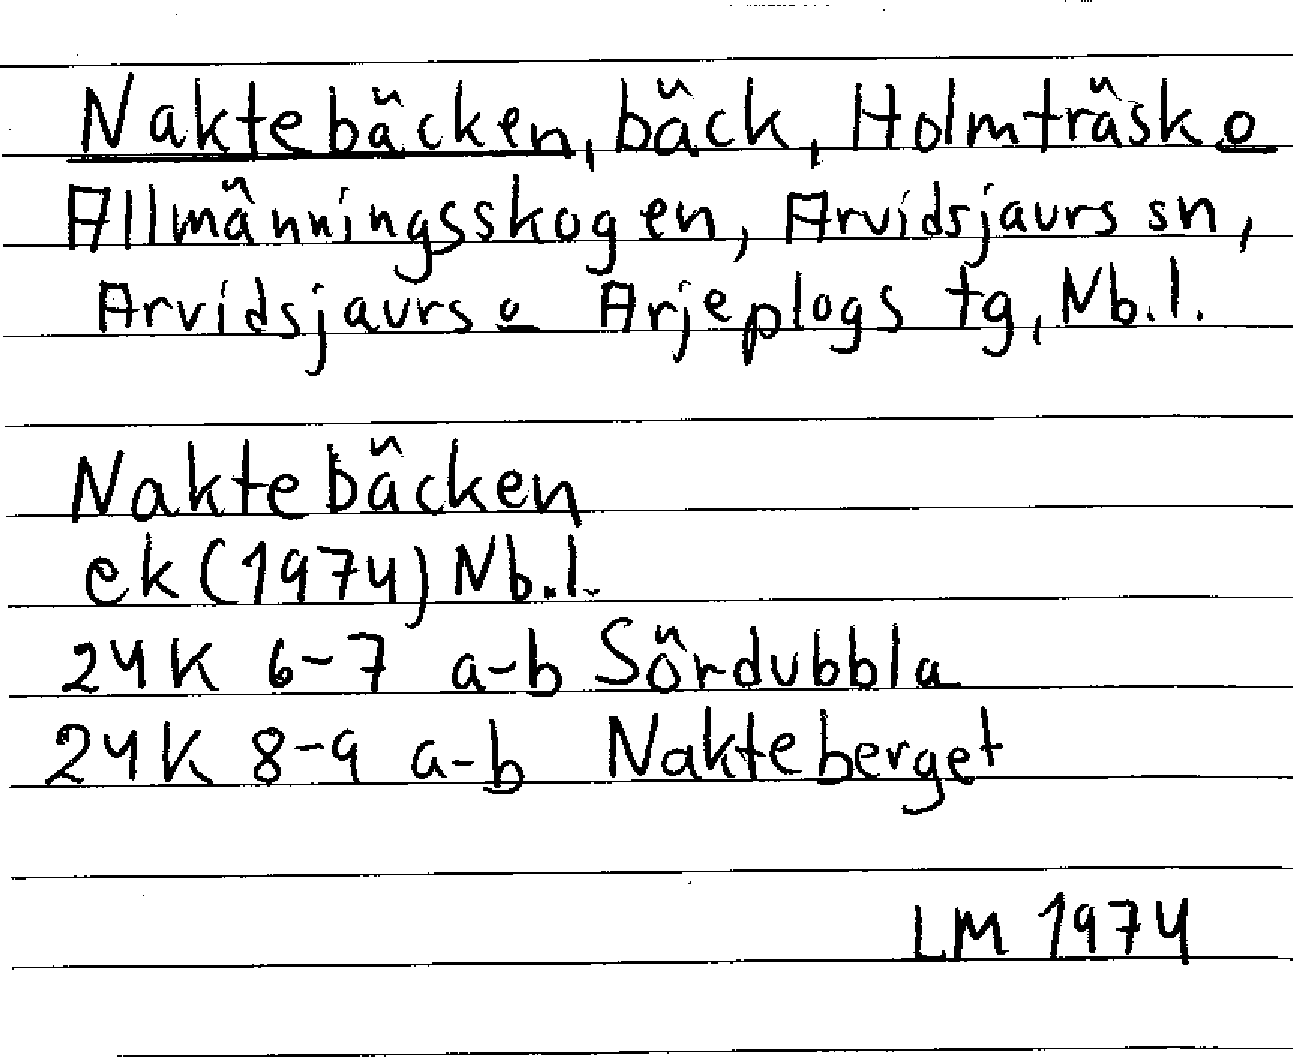 Naktebäcken, bäck, Holmträsk o
Allmänningsskogen, Arvidsjaurs sn,
Arvidsjaurs o Arjeplogs tg, Nb.l.
Naktebäcken
ek (1974) Nb.l.
24K 6-7 a-b Sördubbla
24K 8-9 a-b Nakteberget
LM 1974